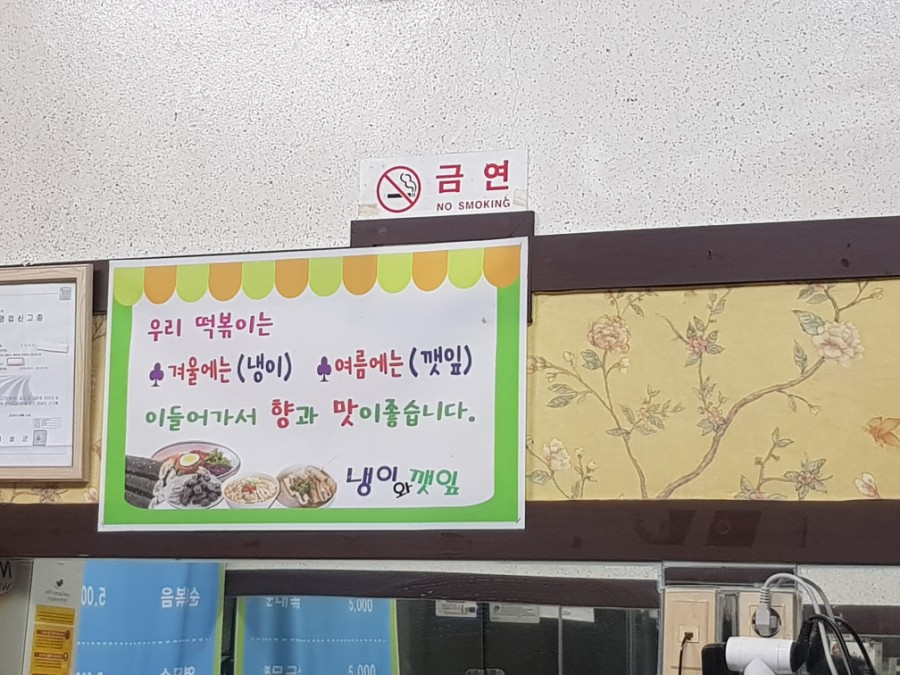 금 연
NO SMOKING
우리 떡볶이는
♣겨울에는(냉이) ♣여름에는(깻잎)
이들어가서 향과 맛이좋습니다.
냉이와깻잎
영업신고증
순볶음
5.00
5,000
5,000